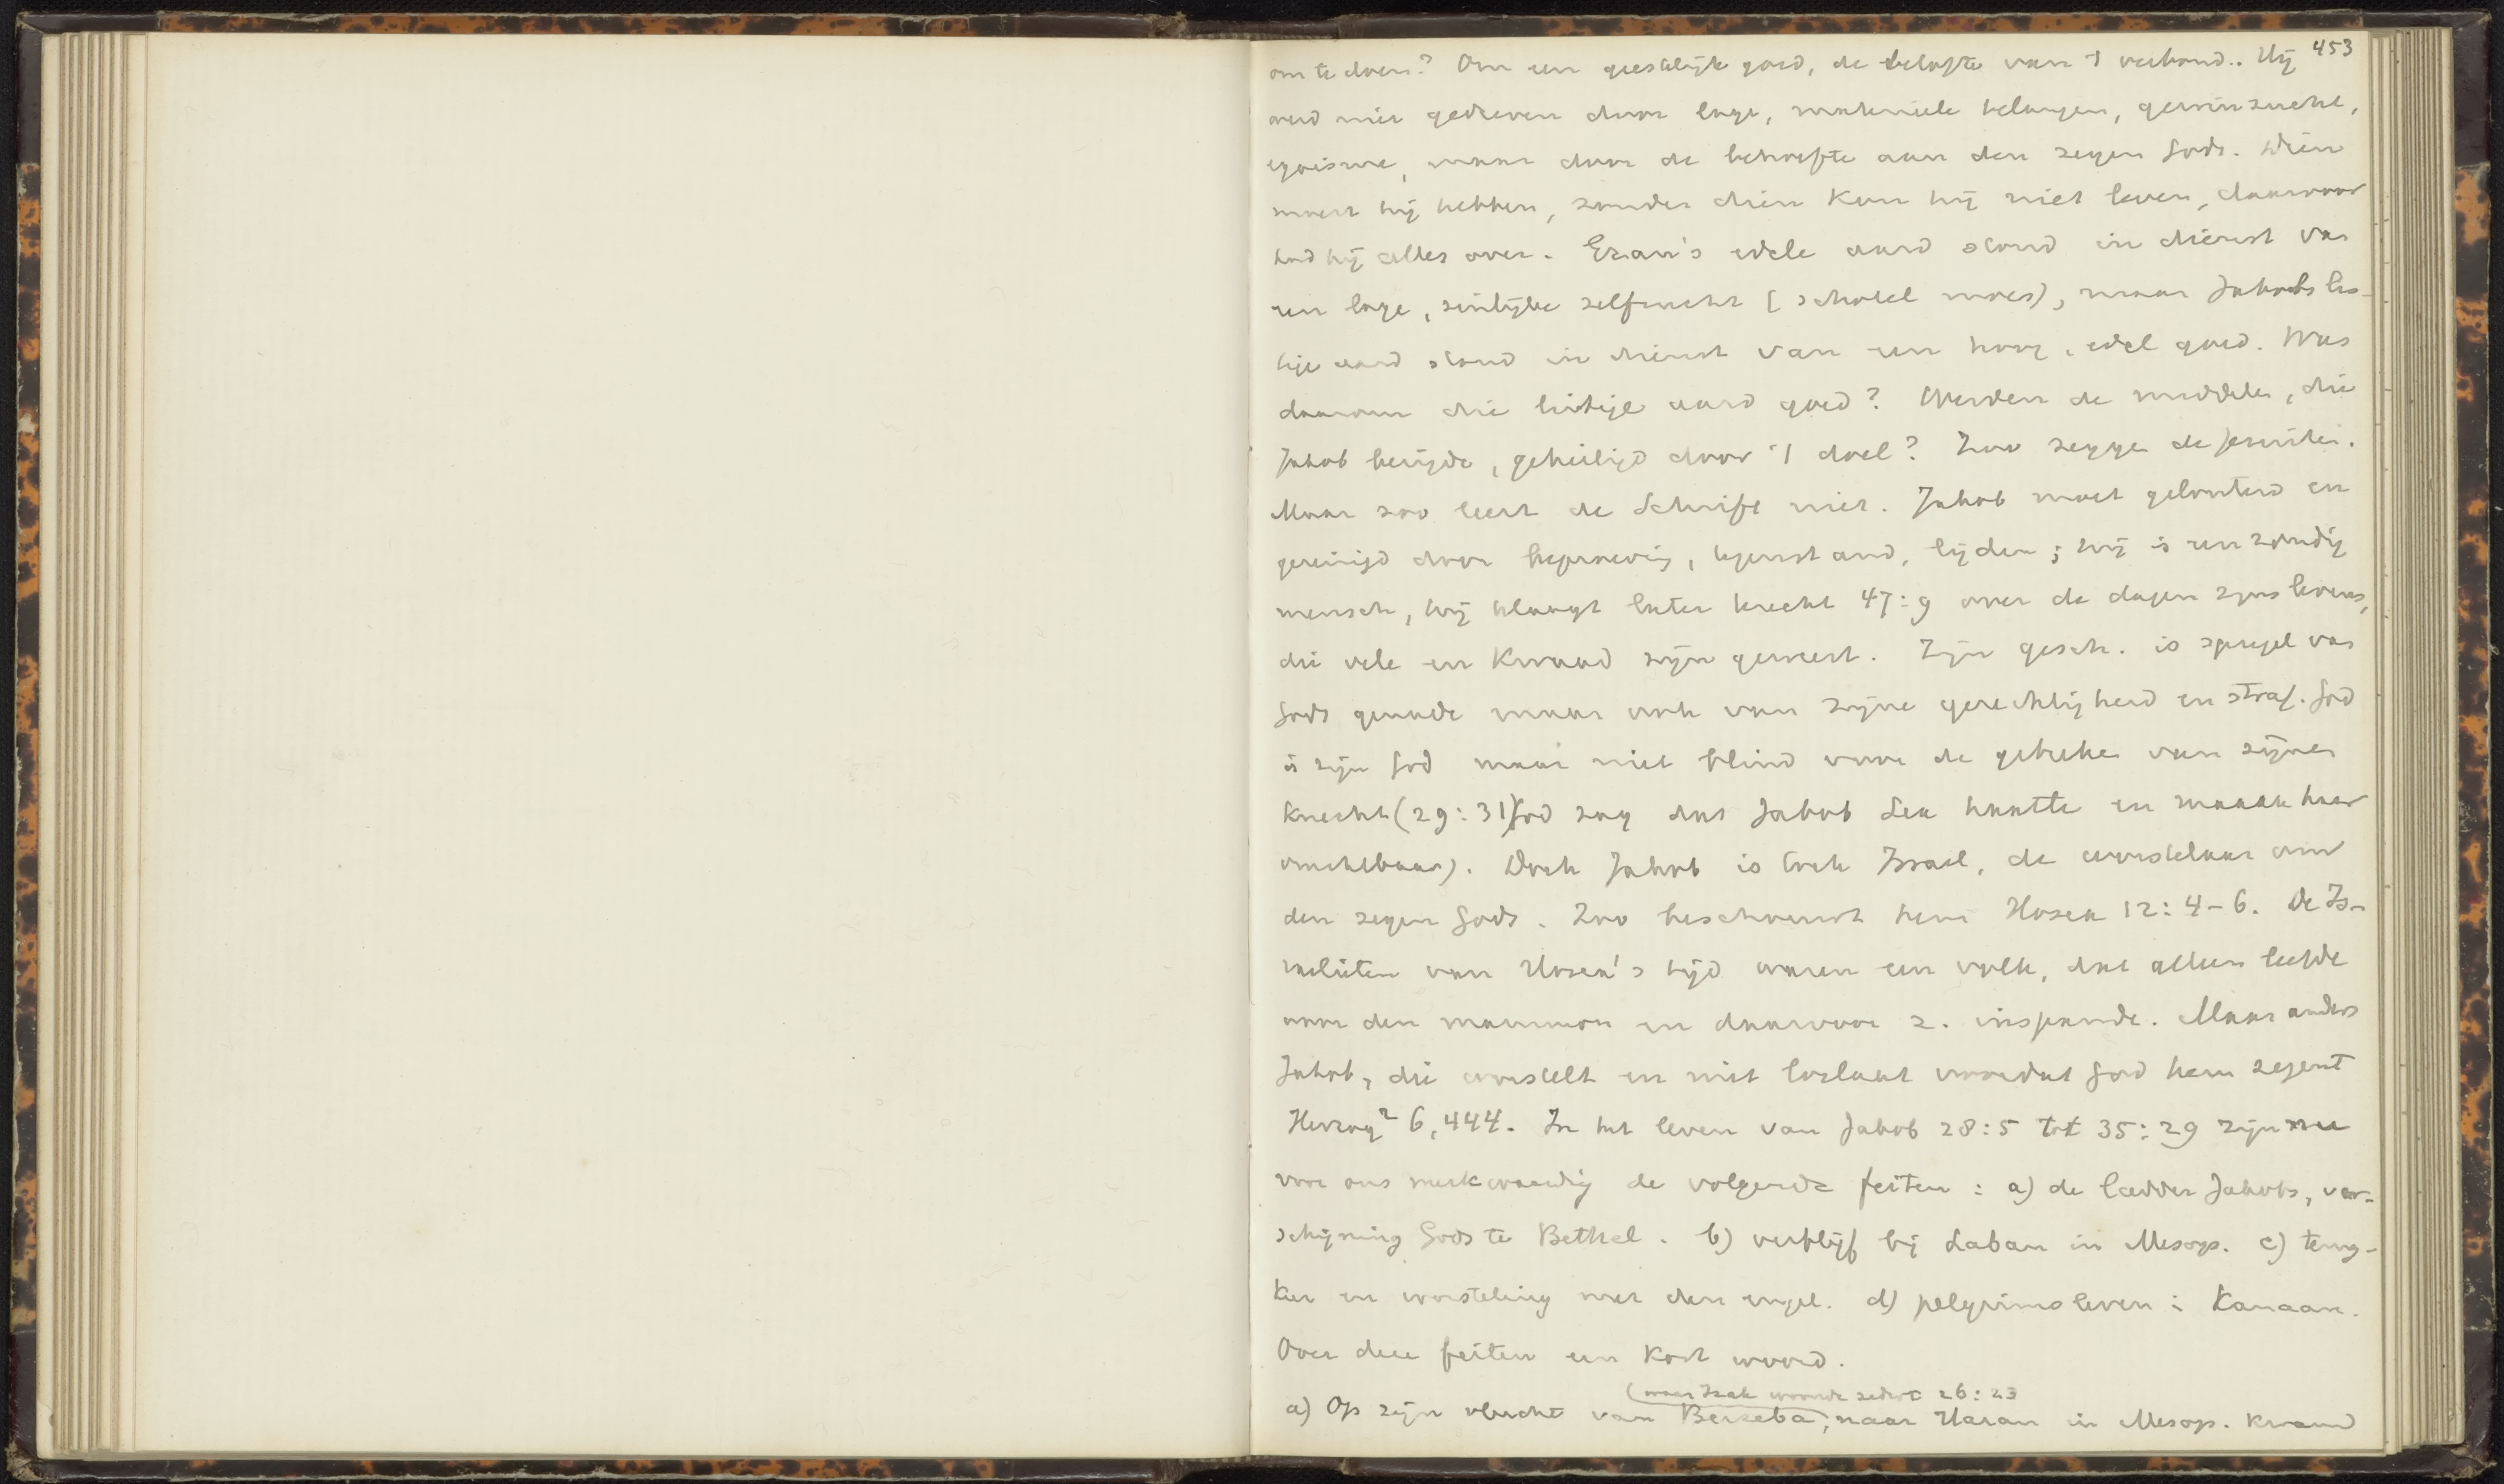 453
om te doen? Om een geestelijk goed, de belofte van 't verbond.. Hij
werd niet gedreven door lage, materiele belangen, gewinzucht,
egoisme, maar door de behoefte aan den zegen Gods. Dien
moest hij hebben, zonder dien kon hij niet leven, daarvoor
had hij alles over. Ezau's edele aard stond in dienst van
een lage, zinlijke zelfzucht (schotel moes), maar Jakobs lis-
tige aard stond in dienst van een hoog, edel goed. Was
daarom die listige aard goed? Werden de middelen, die
Jakob bezigde, geheiligd door 't doel? Zoo zeggen de Jesuiten.
Maar zoo leert de Schrift niet. Jakob moet gelouterd en
gereinigd door beproeving, tegenstand, lijden; hij is een zondig
mensch, hij klaagt later terecht 47:9 over de dagen zijns levens,
die vele en kwaad zijn geweest. Zijn gesch. is spiegel van
Gods genade maar ook van zijne gerechtigheid en straf. God
is zijn God maar niet blind voor de gebreken van zijnen
knecht (29:31) God zag dat Jakob Lea haatte en maakte haar
vruchtbaar). Doch Jakob is toch Israel, de worstelaar om
den zegen Gods. Zoo beschouwt hem Hosea 12:4-6. De Is-
raelieten van Hosea's tijd waren een volk, dat alleen leefde
voor den mammon en daarvoor z. inspande. Maar anders
Jakob, die worstelt en niet loslaat voordat God hem zegent
Herzog² 6,444. In het leven van Jakob 28:5 tot 35:29 zijn nu
voor ons merkwaardig de volgende feiten: a) de ladder Jakobs, ver-
schijning Gods te Bethel. b) verblijf bij Laban in Mesop. c) terug-
keer en worsteling met den engel. d) pelgrimsleven i Kanaan.
Over deze feiten een kort woord.
(waar Izak woonde sedert 26:23
a) Op zijn vlucht van Berseba, naar Haran in Mesop. kwam